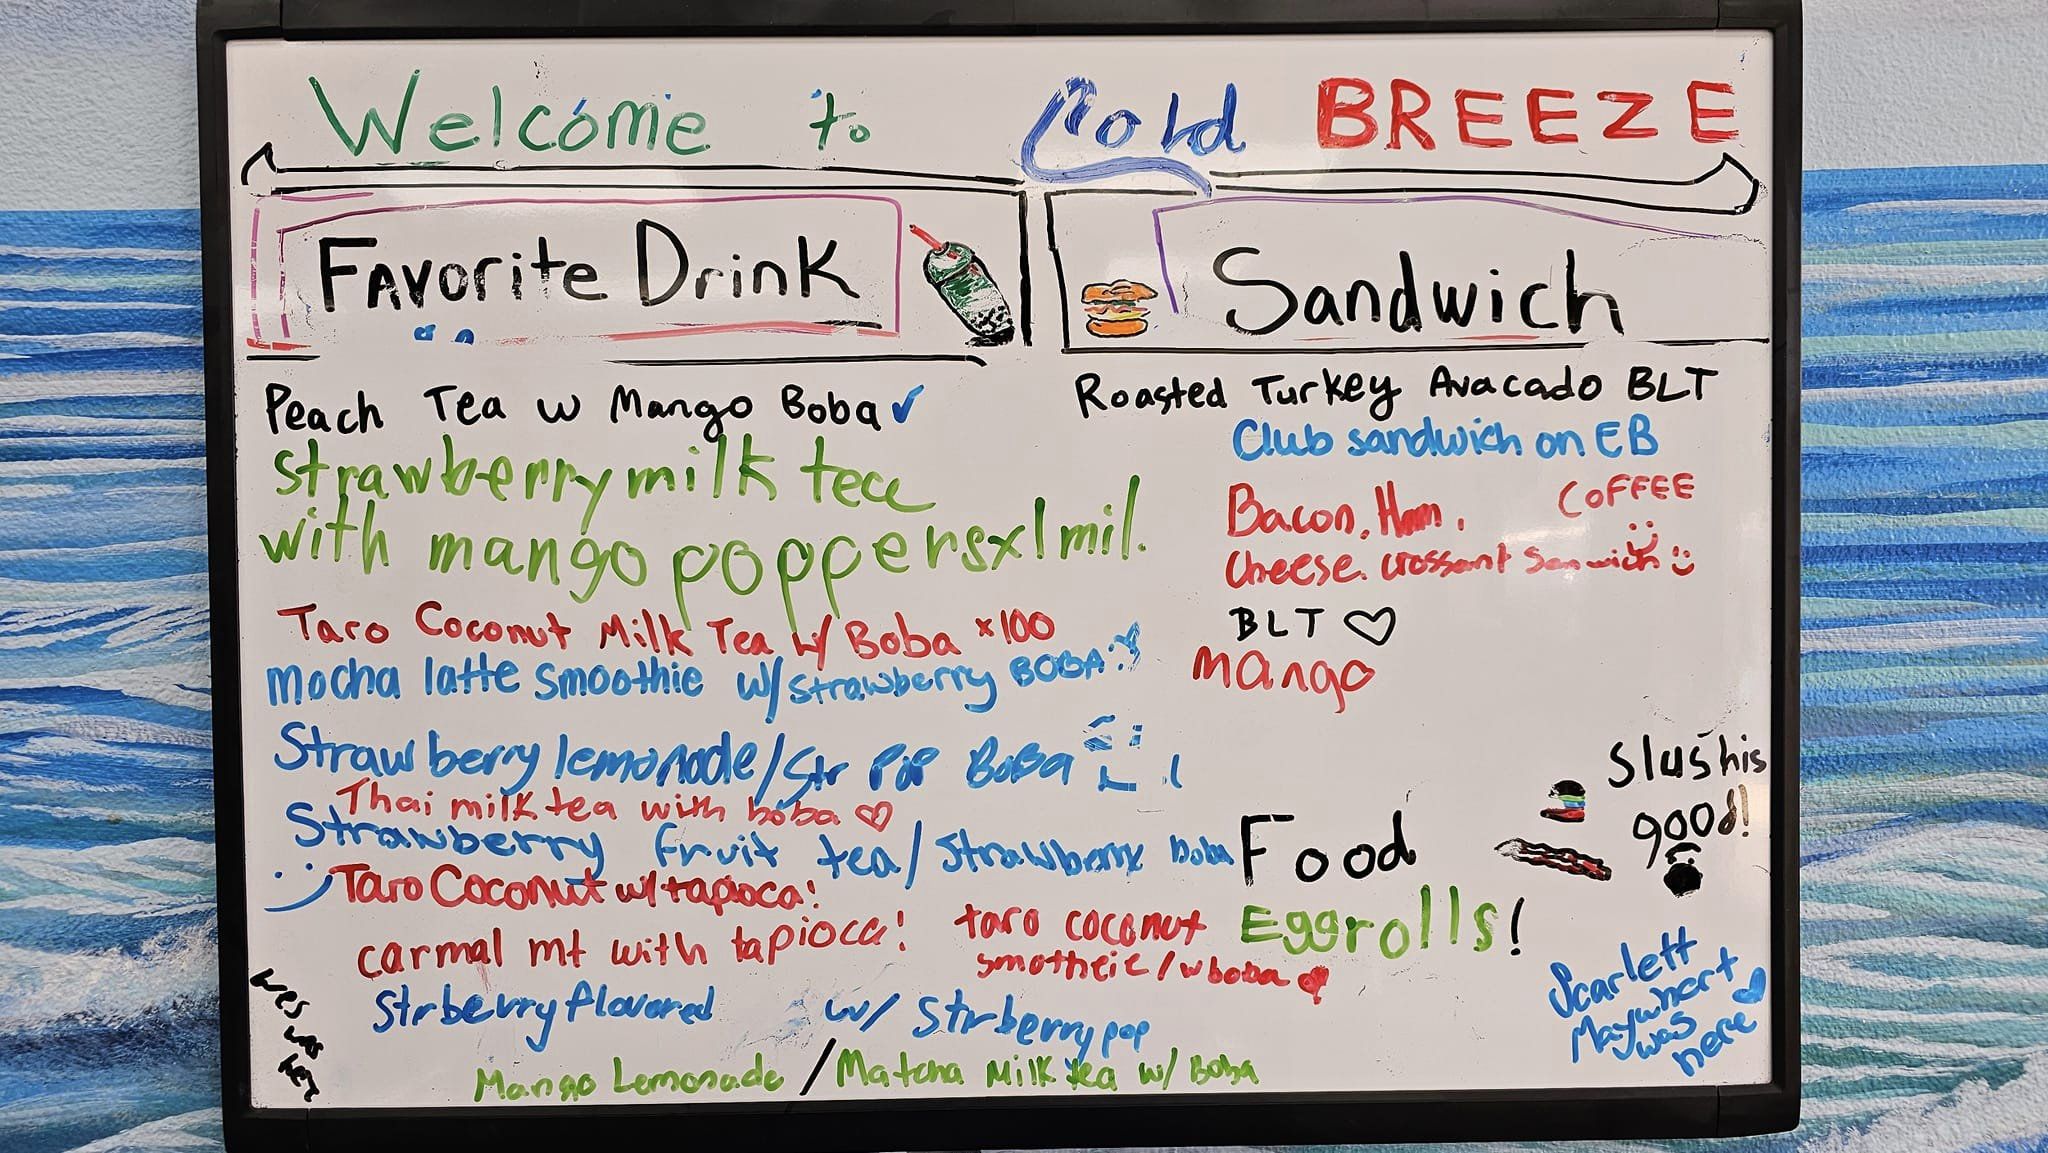 Welcome to Cold BREEZE
FAvorite Drink
Sandwich
Peach Tea w Mango Boba
strawberry milk tea
with mango poppersx1mil.
Taro Coconut Milk Tea w/ Boba x100
mocha latte smoothie w/strawberry BOBA
Strawberry lemonade/Str POP BoBa
Thai milk tea with boba
Strawberry fruit tea/strawberry boba
Taro Coconut w/tapioca!
carmal mt with tapioca!
taro coconut
smotheie/w boba
strberry flavored w/ strberry pop
Mango Lemonade / Matcha Milk tea w/ Boba
wes
was
here
Roasted Turkey Avacado BLT
Club sandwich on EB
Bacon, Ham,
COFFEE
Cheese. crossant Sanwich
BLT
mango
Slushis
good!
Food
Eggrolls!
Scarlett
Maywhort
was
here